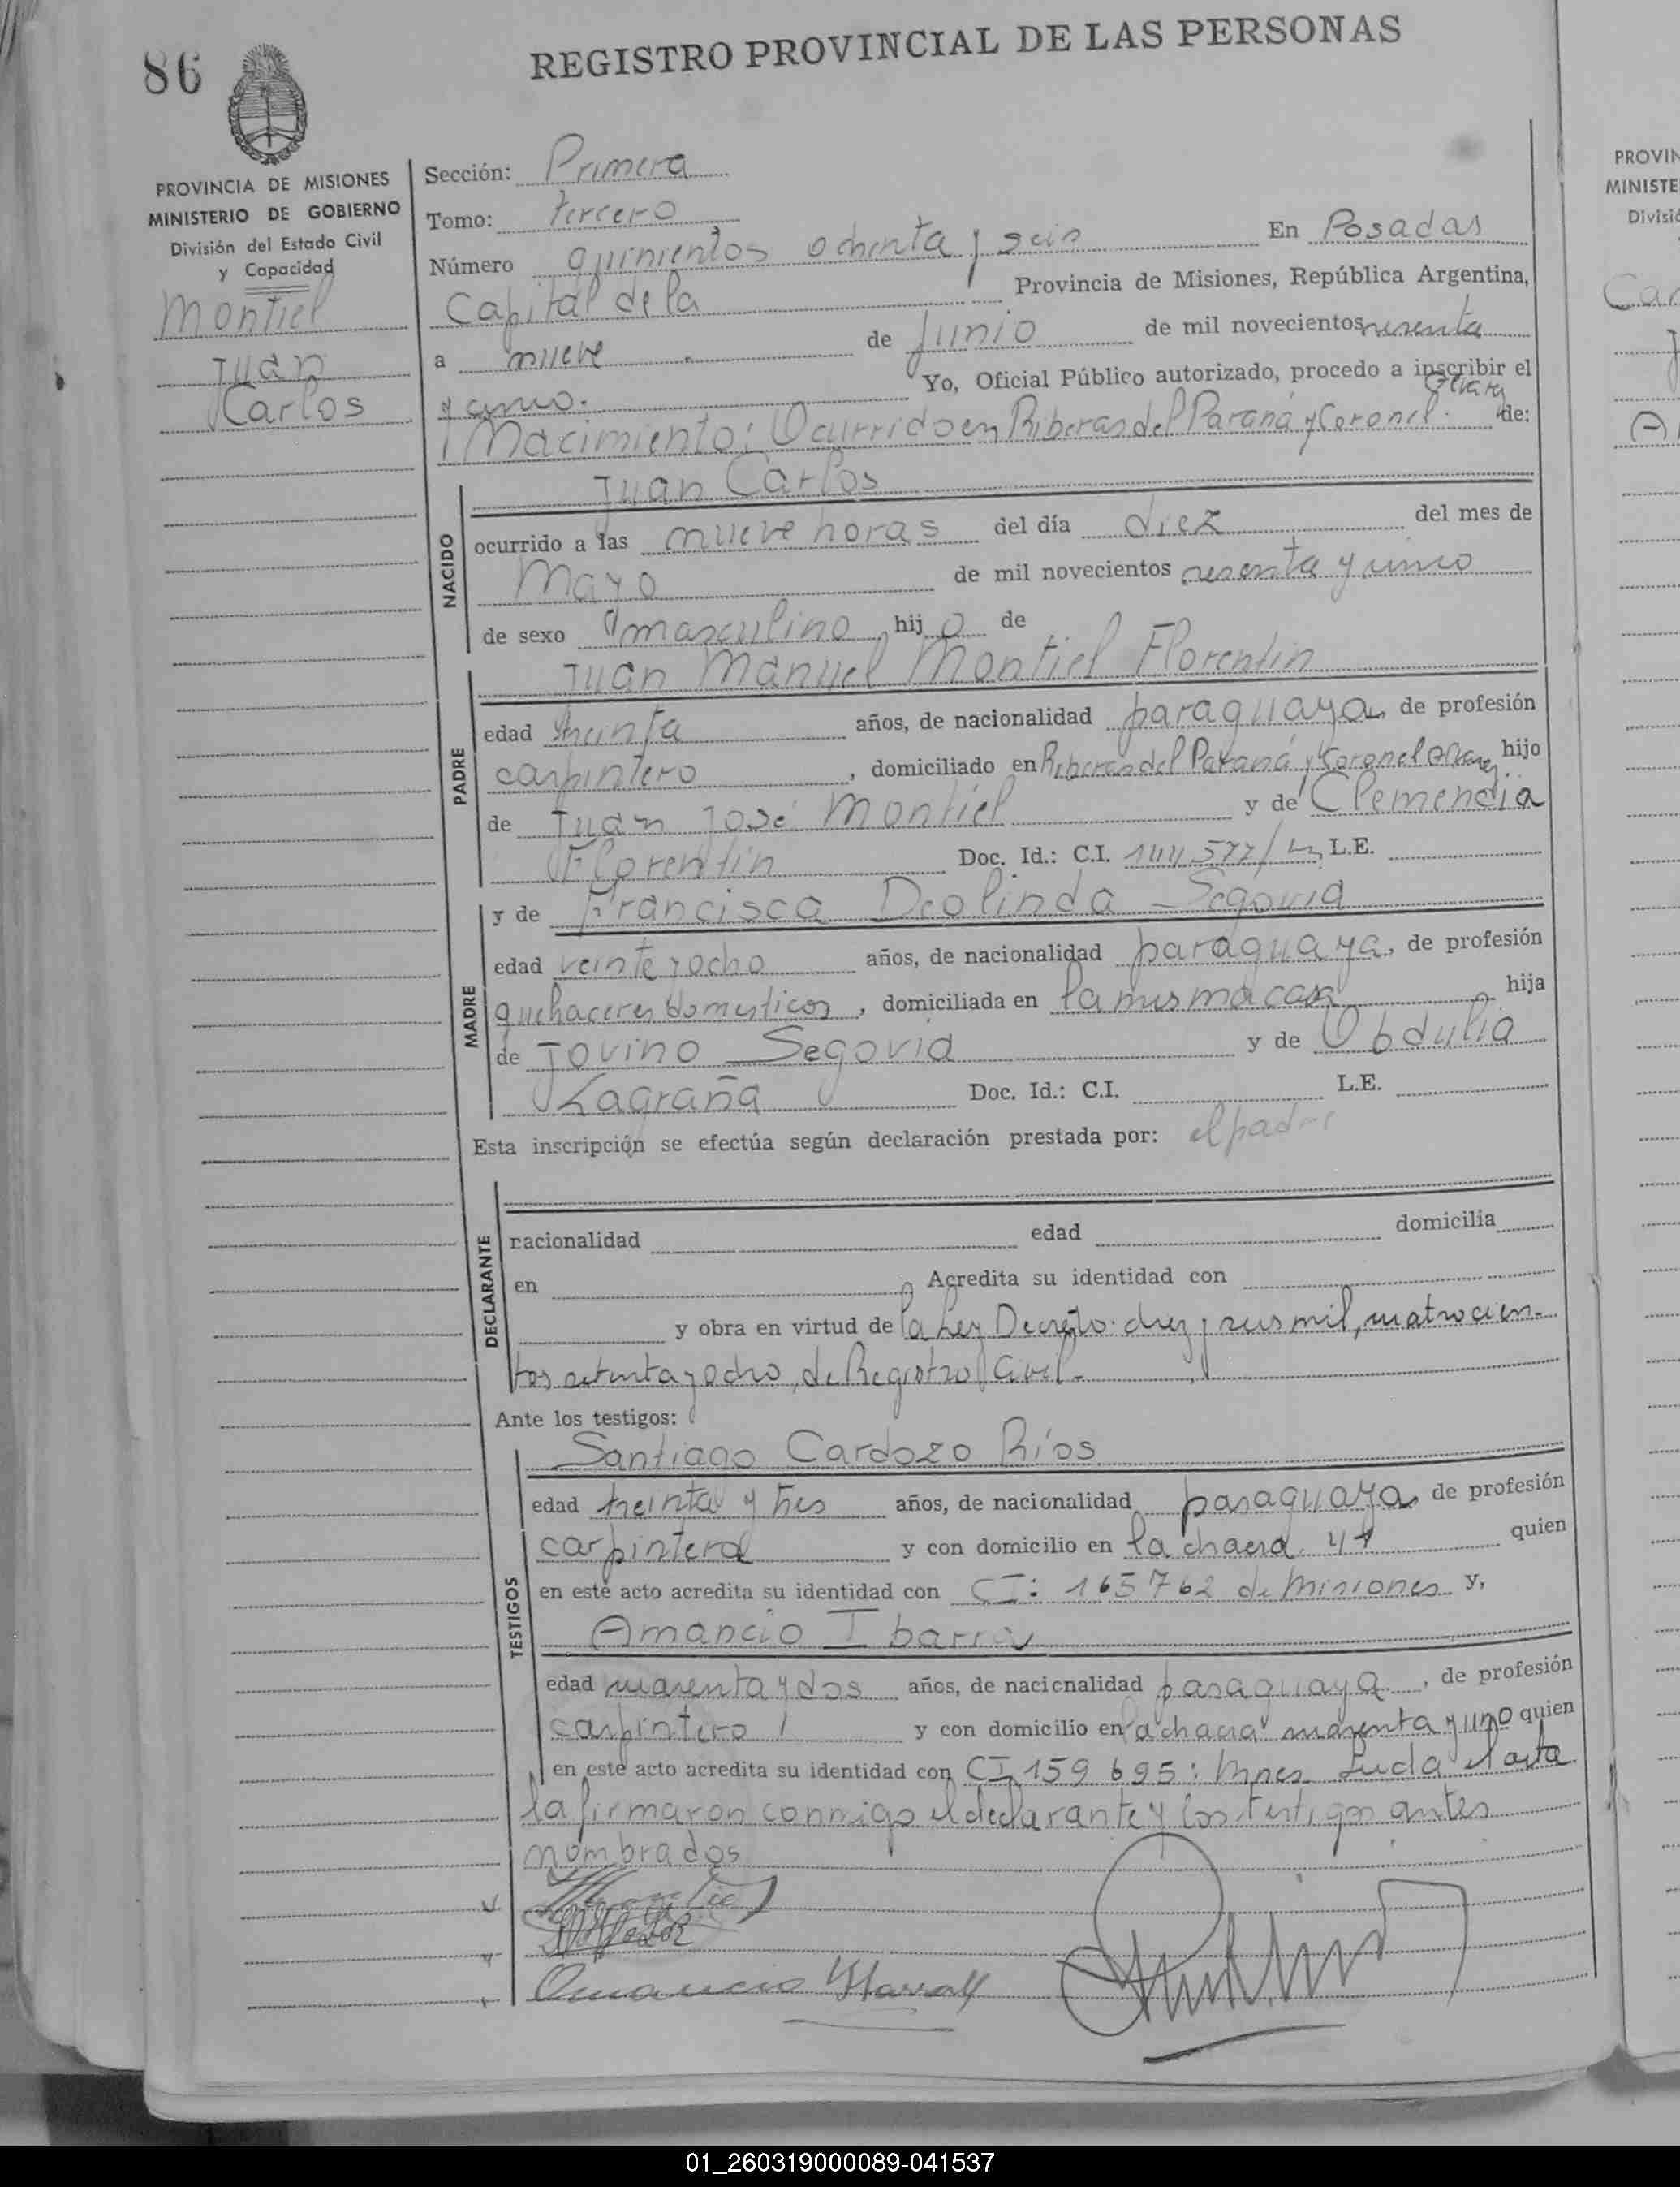 86
REGISTRO PROVINCIAL DE LAS PERSONAS
PROVINCIA DE MISIONES
MINISTERIO DE GOBIERNO
División del Estado Civil
y Capacidad
Montiel
Juan
Carlos
Sección: Primera
Tomo: tercero
Número quinientos ochenta y seis En Posadas
Capital de la Provincia de Misiones, República Argentina,
a nueve de Junio de mil novecientos sesenta
y uno. Yo, Oficial Público autorizado, procedo a inscribir el
Nacimiento: Ocurrido en Riberas del Paraná y Coronel Alvarez de:
NACIDO
Juan Carlos
ocurrido a las nueve horas del día diez del mes de
Mayo de mil novecientos sesenta y uno
de sexo masculino, hijo de
PADRE
Juan Manuel Montiel Florentin
edad treinta años, de nacionalidad paraguaya, de profesión
carpintero, domiciliado en Riberas del Paraná y Coronel Alvarez hijo
de Juan José Montiel y de Clemencia
Florentin Doc. Id.: C.I. L.E.
MADRE
y de Francisca Deolinda Segovia
edad veinte y ocho años, de nacionalidad paraguaya, de profesión
quehaceres domesticos, domiciliada en la misma casa hija
de Jovino Segovia y de Obdulia
Lagraña Doc. Id.: C.I. L.E.
Esta inscripción se efectúa según declaración prestada por: el padre
DECLARANTE
nacionalidad edad domicilia
en Acredita su identidad con
y obra en virtud de la Ley Decreto diez y seis mil, cuatrocien-
tos setenta y ocho, de Registro Civil.-
Ante los testigos:
TESTIGOS
Santiago Cardozo Ríos
edad treinta y tres años, de nacionalidad paraguaya, de profesión
carpintero y con domicilio en la chacra 41 quien
en este acto acredita su identidad con CI: 165762 de Misiones y,
Amancio Ibarra
edad cuarenta y dos años, de nacionalidad paraguaya, de profesión
carpintero y con domicilio en la chacra cuarenta y uno quien
en este acto acredita su identidad con CI 159 695: Mnes Leida el acta
la firmaron conmigo el declarante y los testigos antes
nombrados
Amancio Ibarra
PROVIN
MINISTE
Divisió
01_260319000089-041537